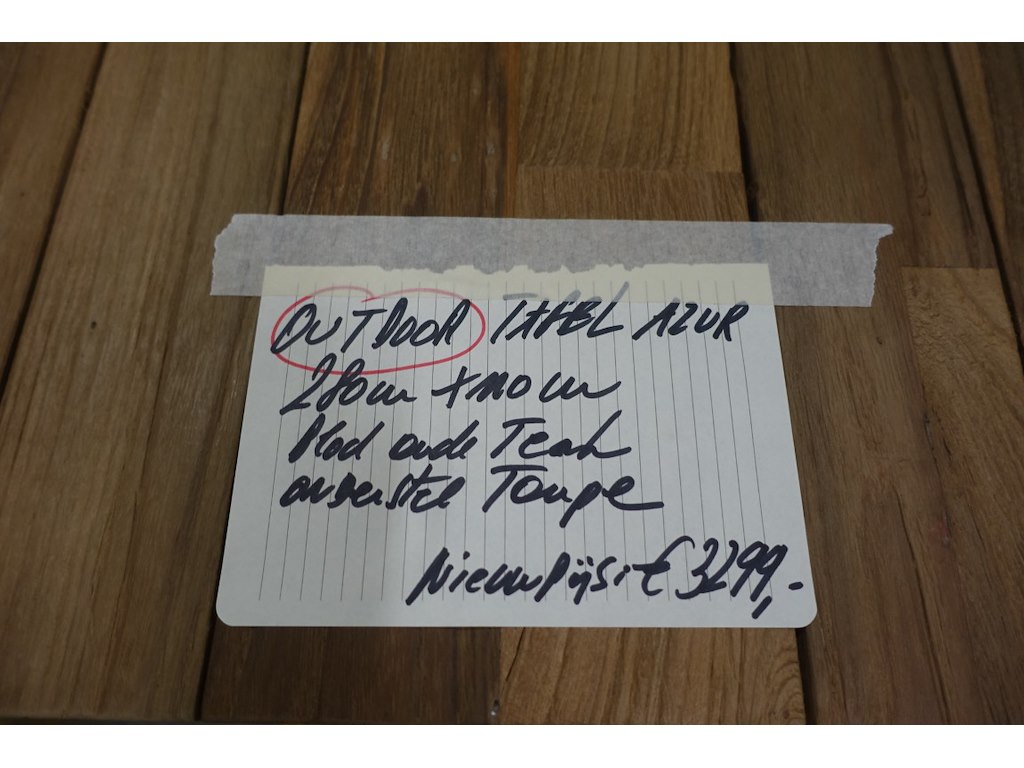 OUTDOOR TAFEL AZUR
280cm x 110 cm
Blad oude Teak
onderstel Toupe
Nieuwprijs: € 3299,-